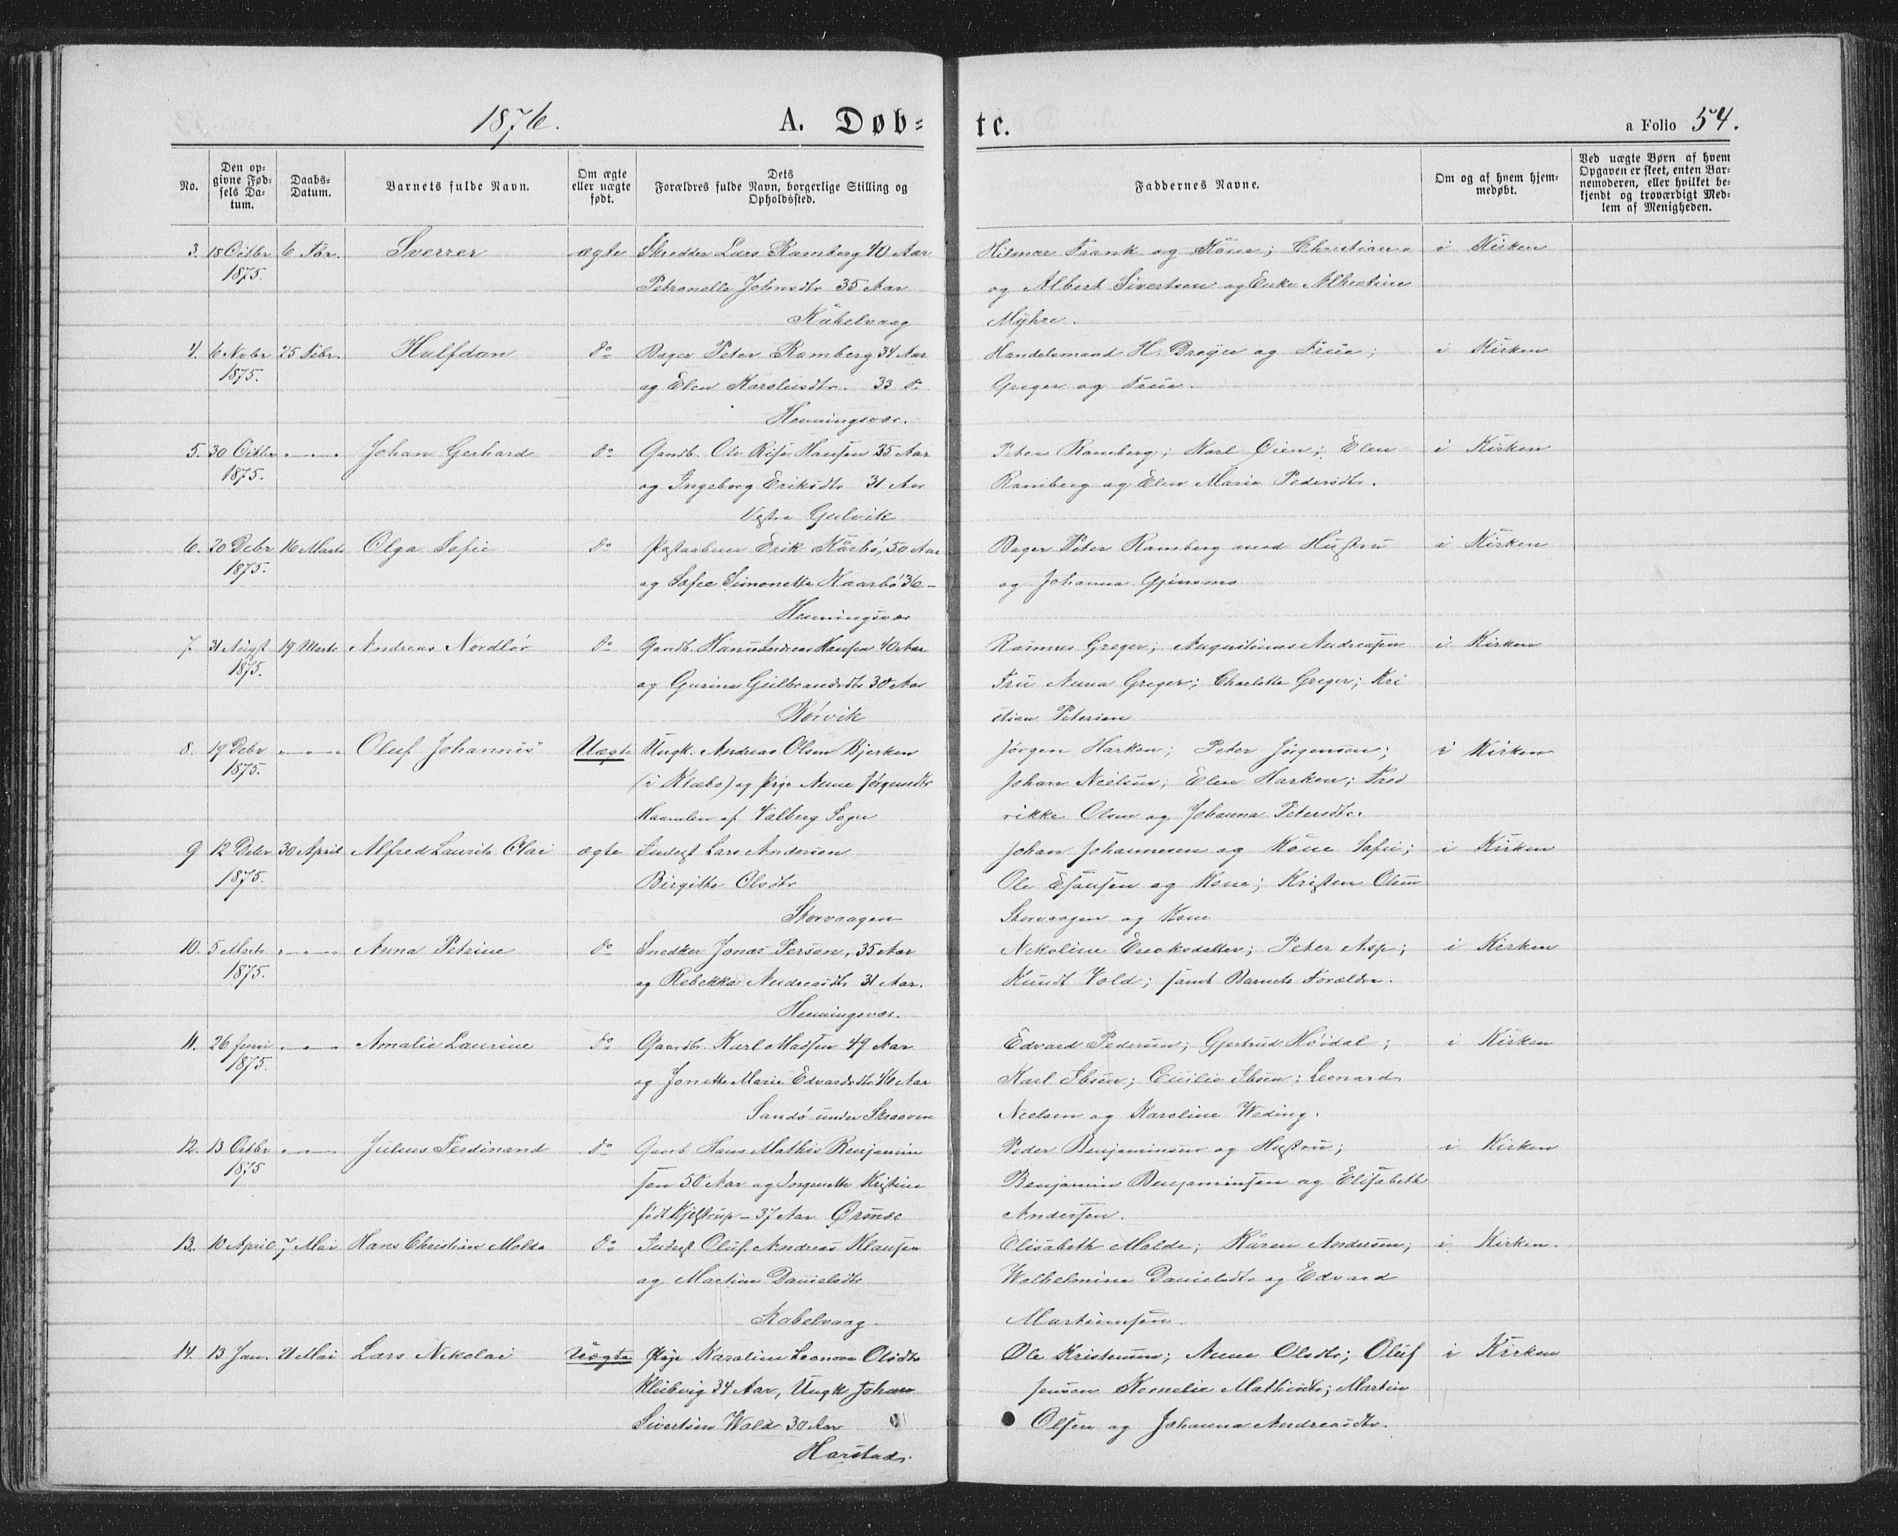 1876. A. Døb- te. a Folio 54.
No. Den opgivne Fødsels Datum. Daabs-Datum. Barnets fulde Navn. Om ægte eller uægte født. Dets Forældres fulde Navn, borgerlige Stilling og Opholdssted. Faddernes Navne. Om og af hvem hjemmedøbt. Ved uægte Børn af hvem Opgaven er skeet, enten Barnemoderen, eller hvilket bekjendt og troværdigt Medlem af Menigheden.
3. 18 Octbr 6 Febr. Sverrer ægte Skredder Lars Ramberg 40 Aar Hilmar Frank og Kone; Christian i Kirken
1875. Petronelle Johnsdtr 35 Aar og Albert Sivertsen og Enke Albertine
Kabelvaag Myhre.
4. 6 Nobr 25 Febr. Halfdan do Bager Peter Ramberg 34 Aar Handelsmand H. Dreyer og Frue; i Kirken
1875. og Elen Karolusdtr. 33 do Greger og Frue.
Henningsvær.
5. 30 Octbr Johan Gerhard do Gaardb. Ole Hansen 35 Aar Peter Ramberg; Karl Oien; Elen i Kirken
1875. og Ingeborg Eriksdtr 31 Aar Ramberg og Elen Maria Pedersdtr.
Vestre Gulvik
6. 20 Debr 16 Marts Olga Sofie do Erik Kårbø, 50 Aar Bager Peter Ramberg med Hustru i Kirken
1875. og Sofie Simonette Kaarbø 36 – og Johanna
Henningsvær
7. 31 Augst 19 Marts Andreas Nordlør do Gaardb. Hans Andreas Hansen 40 Aar Rasmus Greger; Augustinus Andreasen i Kirken
1875. og Gurina Gulbrandsdtr 30 Aar Fru Anna Greger; Charlotte Greger; Kri
Rørvik stian Petersen
8. 19 Debr Oluf Johannes Uægte Ungk. Andreas Olsen Bjerken Jørgen Harken; Peter Jørgensen; i Kirken
1875. (i Klæbo) og Pige Anne Jørgensdtr Johan Nielsen; Elen Harken; Fred
af Valberg Sogn rikke Olsen og Johanna Petersdtr.
9 12 Debr 30 April Alfred Laurits Olai ægte Inderst Lars Andersen Johan Johannesen og Kone Sofie; i Kirken
1875. Birgitte Olsdtr Ole Esaisen og Kone; Kristen Olsen
Storvaagen Storvaagen og Kone
10. 5 Marts Anna Petrine do Snedker Jonas Person, 35 Aar Nekoline Ericksdatter; Peter Asp; i Kirken
1875. og Rebekka Andreasdtr 31 Aar. Knudt Vold; samt Barnets Forældre.
Henningsvær.
11. 26 Juni Amalie Laurine do Gaardb. Karl Madsen 49 Aar Edvard Pedersen; Gjertrud Høidal; i Kirken
1875. og Jonette Marie Edvardsdtr 46 Aar Karl Ibsen; Cecilie Ibsen; Leonard
Sandø under Skraaven Nielsen og Karoline Weding.
12. 13 Octbr Julius Ferdinand do Gaardb Hans Mathis Benjamin Peder Benjaminsen og Hustru; i Kirken
1875 sen 50 Aar og Jorginette Kristine Benjamin Benjaminsen og Elisabeth
født Kjelstrup – 37 Aar Ørsnes Andersen.
13. 10 April 7 Mai Hans Christian Molde do Inderst Oluf Andreas Klausen Elisabeth Molde; Karen Andersen; i Kirken.
og Martine Danielsdtr Welhelmina Danielsdtr og Edvard
Kabelvaag. Martinusen.
14. 13 Jan. 21 Mai Lars Nikolai Uægte Pige Karoline Leonora Olsdtr Ole Kristensen; Anne Olsdtr; Oluf i Kirken
Kleibvig 34 Aar, Ungk Johan Jensen Kornelie Mathisdtr; Martin
Sivertsen Wold 30 Aar Olsen og Johanna Andreasdtr.
Harstad.